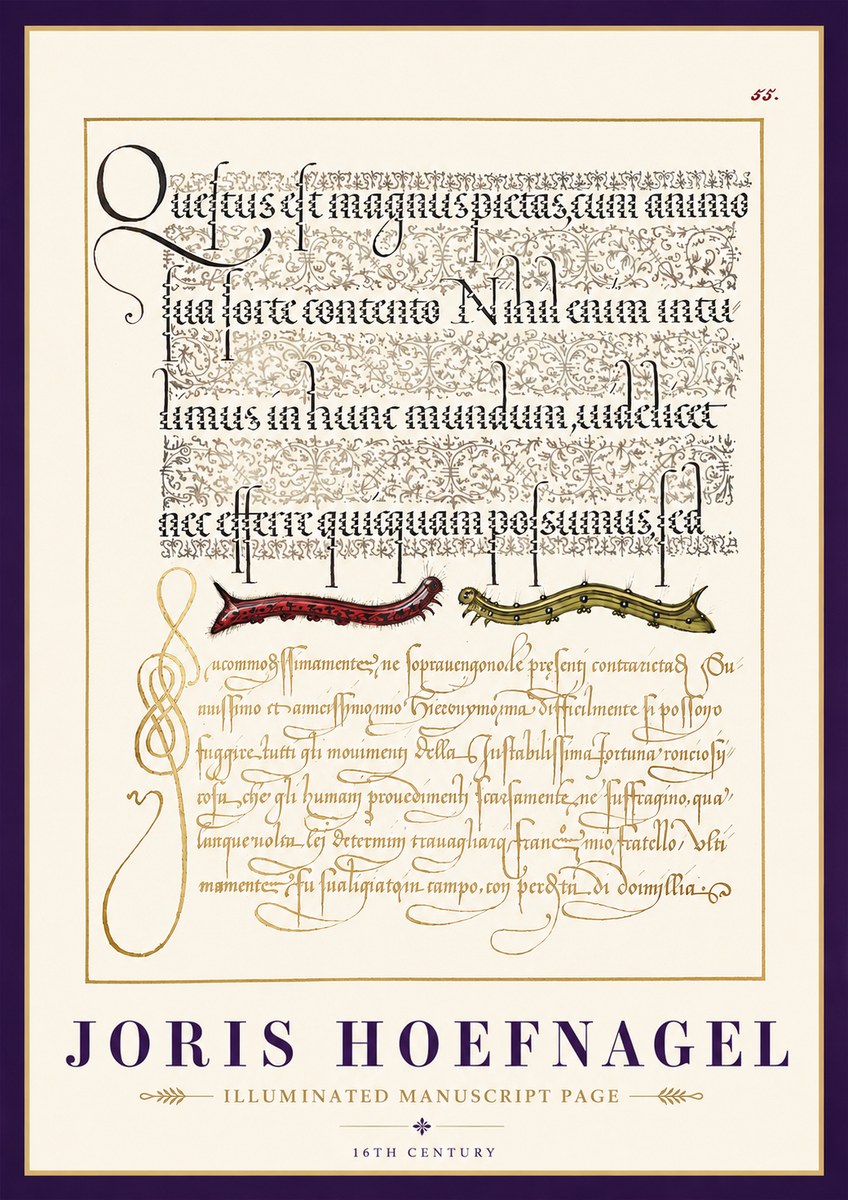 55.
Questus est magnus pietas, cum animo
sua sorte contento Nihil enim intu
limus in hunc mundum, uidelicet
nec efferre quicquam possumus, sed
ne sopravengono le presenti contrarietadi Su
mio Hieronymo, ma difficilmente si possono
fuggire tutti gli movimenti della Instabilissima fortuna
cosi che gli humani prouedimenti scarsamente ne suffragino, qua
lunque volta lei determini mio fratello, Vlti
mamente fu in campo, con perdita di doimillia.
JORIS HOEFNAGEL
ILLUMINATED MANUSCRIPT PAGE
16TH CENTURY